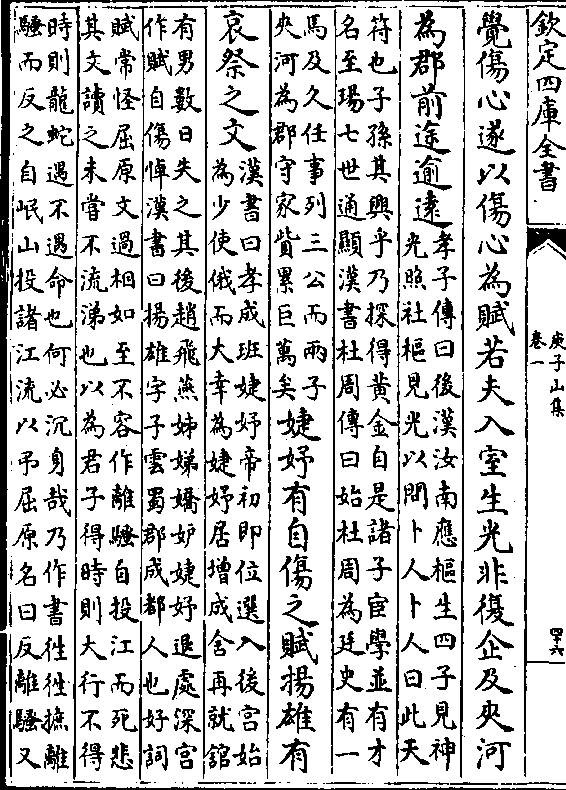 欽定四庫全書
庾子山集
卷一
四十六
覺傷心遂以傷心為賦若夫入室生光非復企及夾河
為郡前途逾遠
孝子傳曰後漢汝南應樞生四子見神
光照社樞見光以問卜人卜人曰此天
符也子孫其興乎乃探得黄金自是諸子宦學並有才
名至瑒七世通顯漢書杜周傳曰始杜周為廷史有一
馬及久任事列三公而兩子
夾河為郡守家貲累巨萬矣
婕妤有自傷之賦揚雄有
哀祭之文
漢書曰孝成班婕妤帝初即位選入後宫始
為少使俄而大幸為婕妤居增成舍再就館
有男數日失之其後趙飛燕姊娣嬌妒婕妤退處深宫
作賦自傷悼漢書曰揚雄字子雲蜀郡成都人也好詞
賦常怪屈原文過相如至不容作離騷自投江而死悲
其文讀之未嘗不流涕也以為君子得時則大行不得
時則龍蛇遇不遇命也何必沉身哉乃作書往往摭離
騷而反之自岷山投諸江流以弔屈原名曰反離騷又